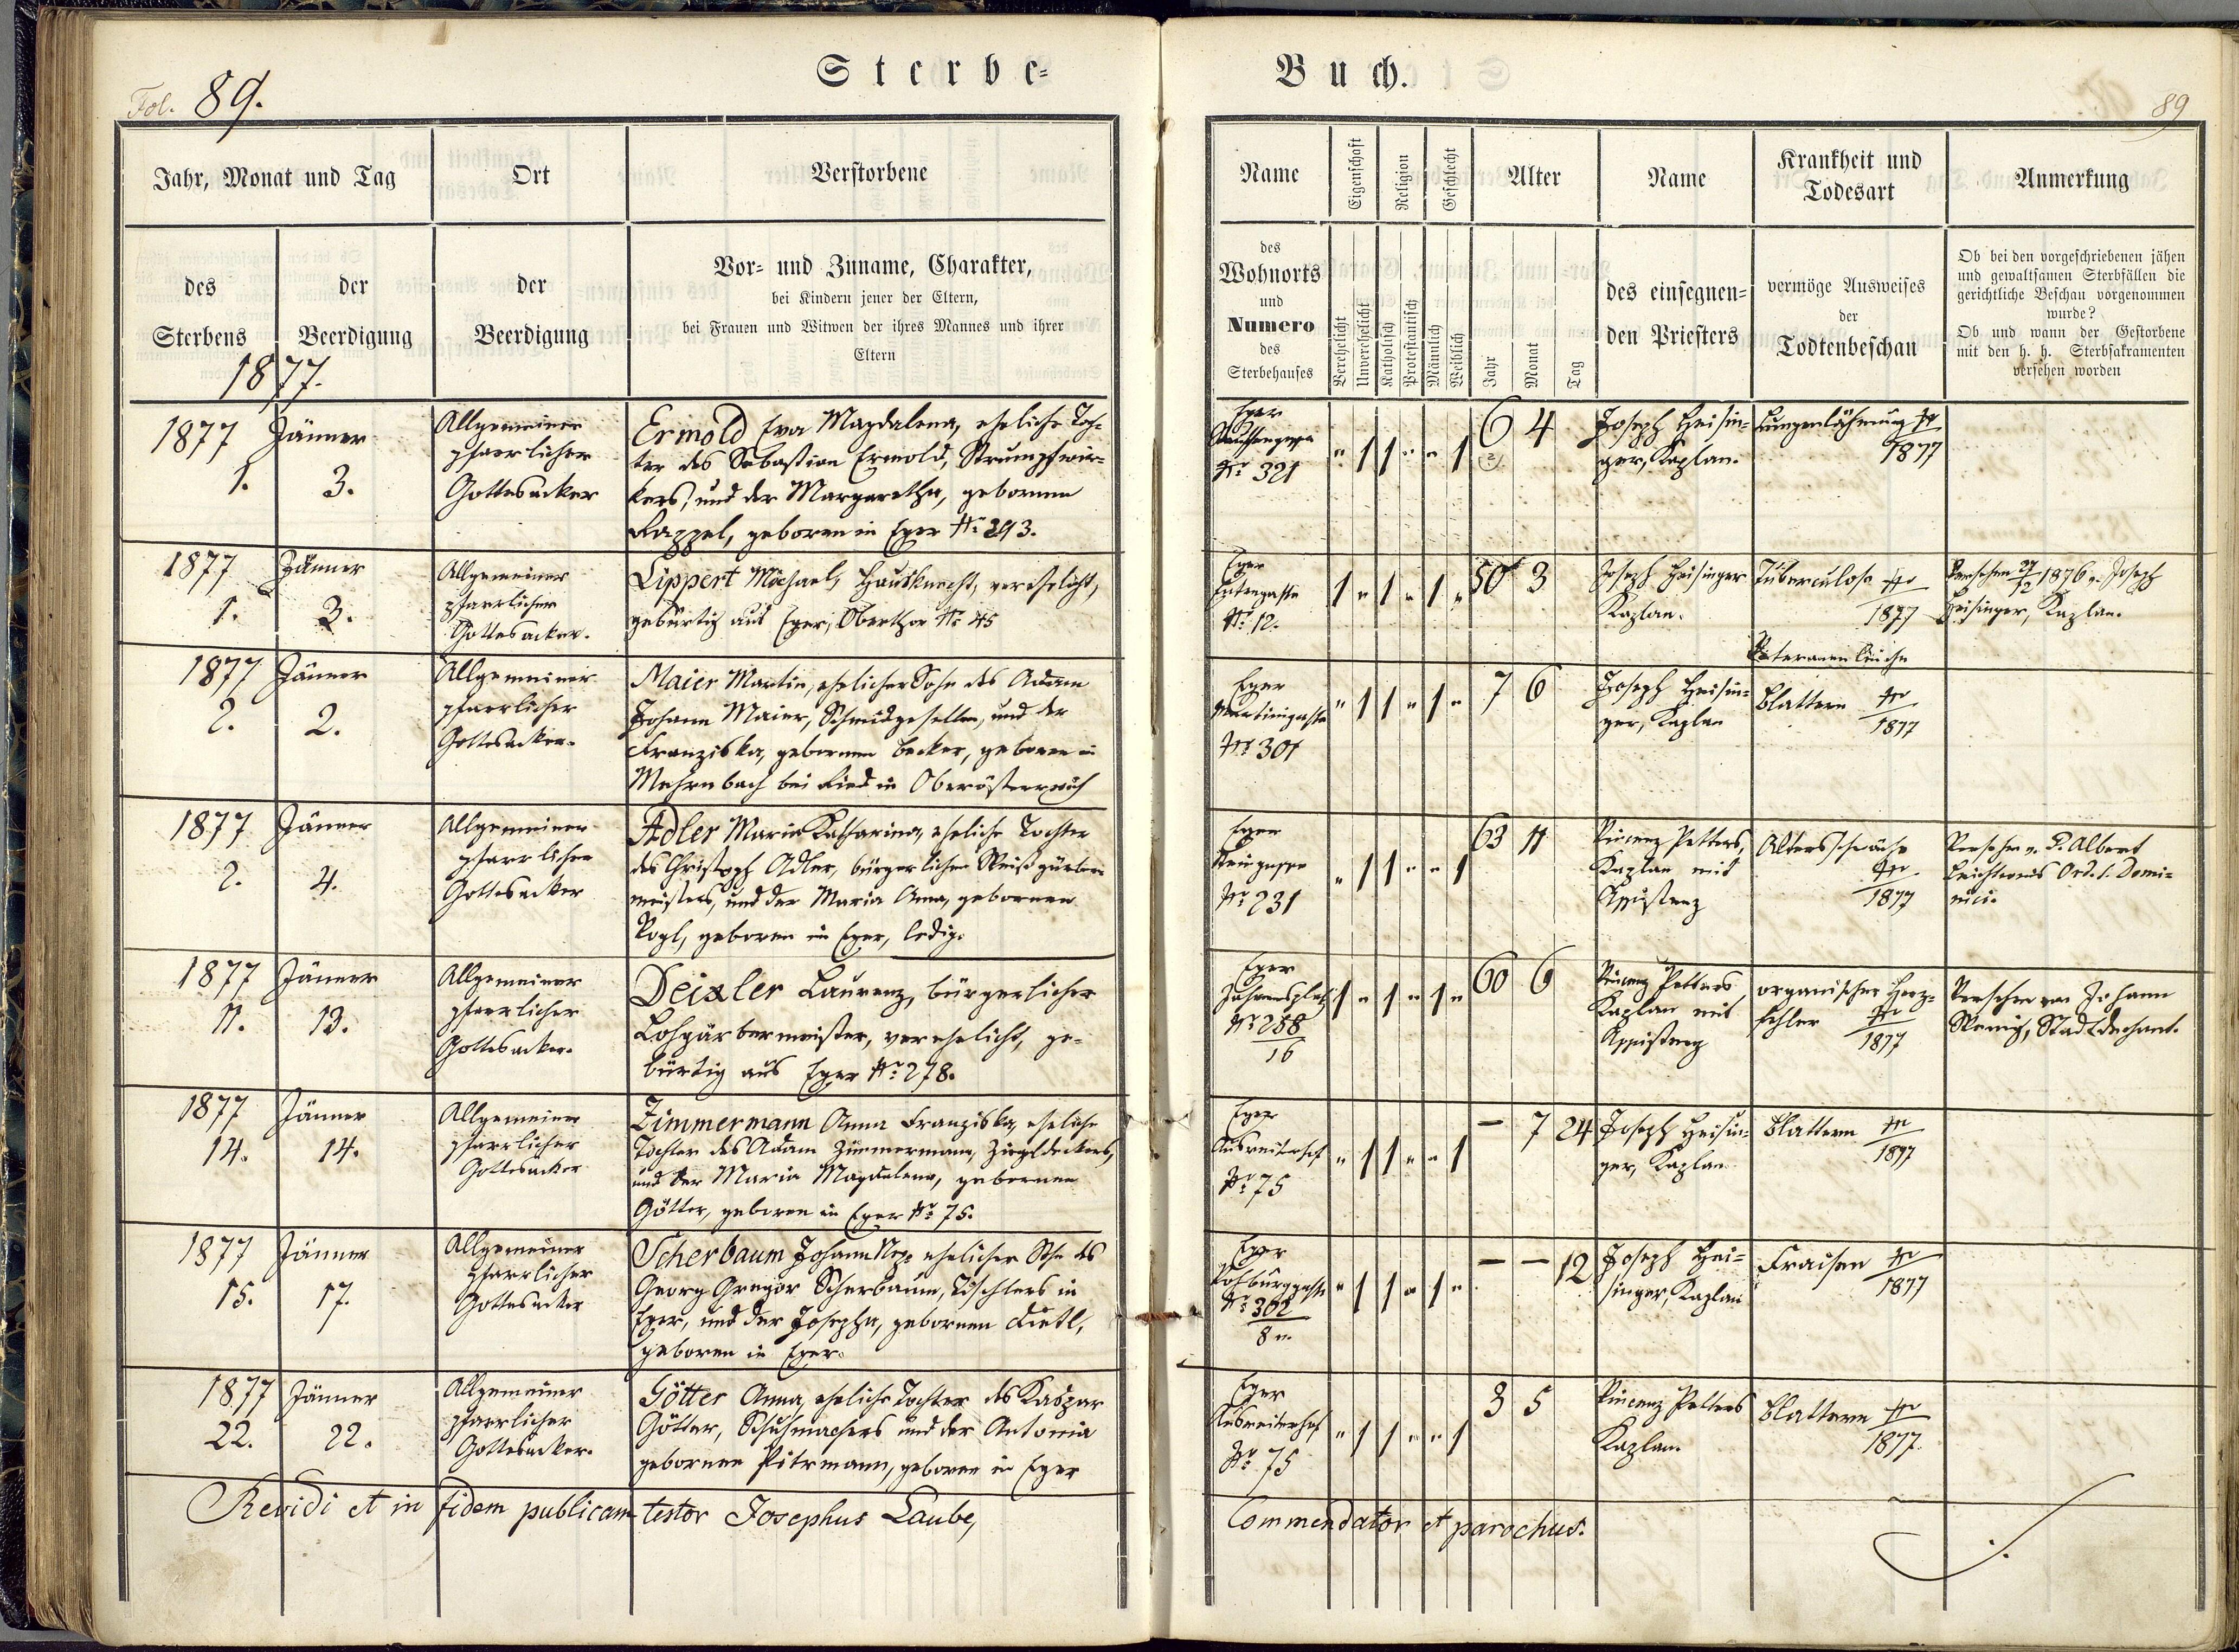 Sterbe-
Buch.
Fol. 89.
89
Jahr, Monat und Tag
Ort
Verstorbene
des
Sterbens
der
Beerdigung
der
Beerdigung
Vor- und Zuname, Charakter,
bei Kindern jener der Eltern,
bei Frauen und Witwen der ihres Mannes und ihrer
Eltern
Name
Eigenschaft
Religion
Geschlecht
Alter
Name
Krankheit und
Todesart
Anmerkung
des
Wohnorts
und
Numero
des
Sterbehauses
Verehelicht
Unverehelicht
Katholisch
Protestantisch
Männlich
Weiblich
Jahr
Monat
Tag
des einsegnen-
den Priesters
vermöge Ausweises
der
Todtenbeschau
Ob bei den vorgeschriebenen jähen
und gewaltsamen Sterbfällen die
gerichtliche Beschau vorgenommen
wurde?
Ob und wann der Gestorbene
mit den h. h. Sterbsakramenten
versehen worden
1877.
1877 Jänner
1. 3.
Allgemeiner
pfarrlicher
Gottesacker
Ermold Eva Magdalena, eheliche Toch-
ter des Sebastian Ermold, Strumpfwir-
kers, und der Margaretha, gebornen
Rappel, geboren in Eger Nr 293.
Eger
Nr 321
" 1 1 " " 1
6 4
Joseph Heisin-
ger, Kaplan.
Lungenlähmung
1877
1877 Jänner
1. 3.
Allgemeiner
pfarrlicher
Gottesacker.
Lippert Michael, Hausknecht, verehelicht,
gebürtig aus Eger, Oberthor Nr 45
Eger
Nr 12.
1 " 1 " 1 "
50 3
Joseph Heisinger
Kaplan.
Tuberculose
1877
Versehen 27/12 1876 v. Joseph
Heisinger, Kaplan.
1877 Jänner
2. 2.
Allgemeiner
pfarrlicher
Gottesacker.
Maier Martin, ehelicher Sohn des Adam
Johann Maier, Schmidgesellen, und der
Franziska, gebornen Becker, geboren in
Mehrnbach bei Ried in Oberösterreich
Eger
Nr 301
" 1 1 " 1 "
7 6
Joseph Heisin-
ger, Kaplan
Blattern
1877
1877 Jänner
2. 4.
Allgemeiner
pfarrlicher
Gottesacker
Adler Maria Katharina, eheliche Tochter
des Christoph Adler, bürgerlichen Weißgärber-
meisters, und der Maria Anna, gebornen
Vogl, geboren in Eger, ledig.
Eger
Steingasse
Nr 231
" 1 1 " " 1
63 11
Vincenz Petters,
Kaplan mit
Assistenz
Altersschwäche
1877
Versehen v. P. Albert
Ord. S. Domi-
nici.
1877 Jänner
11. 13.
Allgemeiner
pfarrlicher
Gottesacker.
Deixler Laurenz, bürgerlicher
Lohgärbermeister, verehelicht, ge-
bürtig aus Eger Nr 278.
Eger
Johannesplatz
Nr 258/16
1 " 1 " 1 "
60 6
Vincenz Petters
Kaplan mit
Assistenz
organischer Herz-
fehler
1877
Versehen von Johann
Stadtdechant.
1877 Jänner
14. 14.
Allgemeiner
pfarrlicher
Gottesacker
Zimmermann Anna Franziska, eheliche
Tochter des Adam Zimmermann, Ziegeldeckers,
und der Maria Magdalena, gebornen
Götter, geboren in Eger Nr 75.
Eger
Ausreiterhof
Nr 75
" 1 1 " " 1
– 7 24
Joseph Heisin-
ger, Kaplan
Blattern
1877
1877 Jänner
15. 17.
Allgemeiner
pfarrlicher
Gottesacker
Scherbaum Johann Nep. ehelicher Sohn des
Georg Gregor Scherbaum, Tischlers in
Eger, und der Josepha, gebornen Dietl,
geboren in Eger.
Eger
Nr 302
" 1 1 " 1 "
– – 12
Joseph Hei-
singer, Kaplan
Fraisen
1877
1877 Jänner
22. 22.
Allgemeiner
pfarrlicher
Gottesacker.
Götter Anna, eheliche Tochter des Kaspar
Götter, Schuhmachers und der Antonia
gebornen Pitrmann, geboren in Eger
Eger
Ausreiterhof
Nr 75
" 1 1 " " 1
3 5
Vincenz Petters
Kaplan.
Blattern
1877.
Revidi et in fidem publicam testor Josephus Laube,
Commendator et parochus.